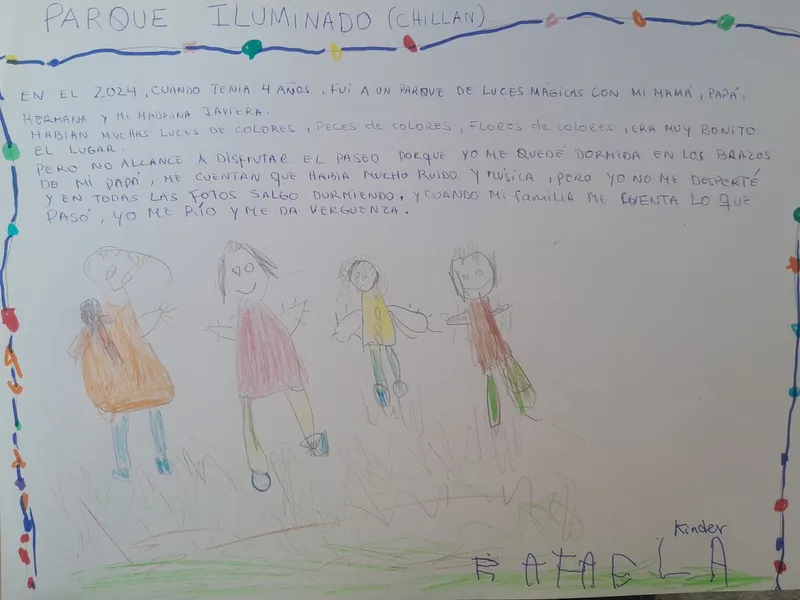 PARQUE ILUMINADO (CHILLAN)
EN EL 2024, CUANDO TENIA 4 AÑOS, FUI A UN PARQUE DE LUCES MÁGICAS CON MI MAMÁ, PAPÁ,
HERMANA Y MI MADRINA JAVIERA.
HABIAN MUCHAS LUCES DE COLORES, PECES de COLORES, FLORES de COLORES, ERA MUY BONITO
EL LUGAR.
PERO NO ALCANCE A DISFRUTAR EL PASEO PORQUE YO ME QUEDÉ DORMIDA EN LOS BRAZOS
DE MI PAPÁ, ME CUENTAN QUE HABIA MUCHO RUIDO Y MUSICA, PERO YO NO ME DESPERTÉ
Y EN TODAS LAS FOTOS SALGO DURMIENDO, Y CUANDO MI FAMILIA ME CUENTA LO QUE
PASÓ, YO ME RÍO Y ME DA VERGUENZA.
Kinder
RAFAELA